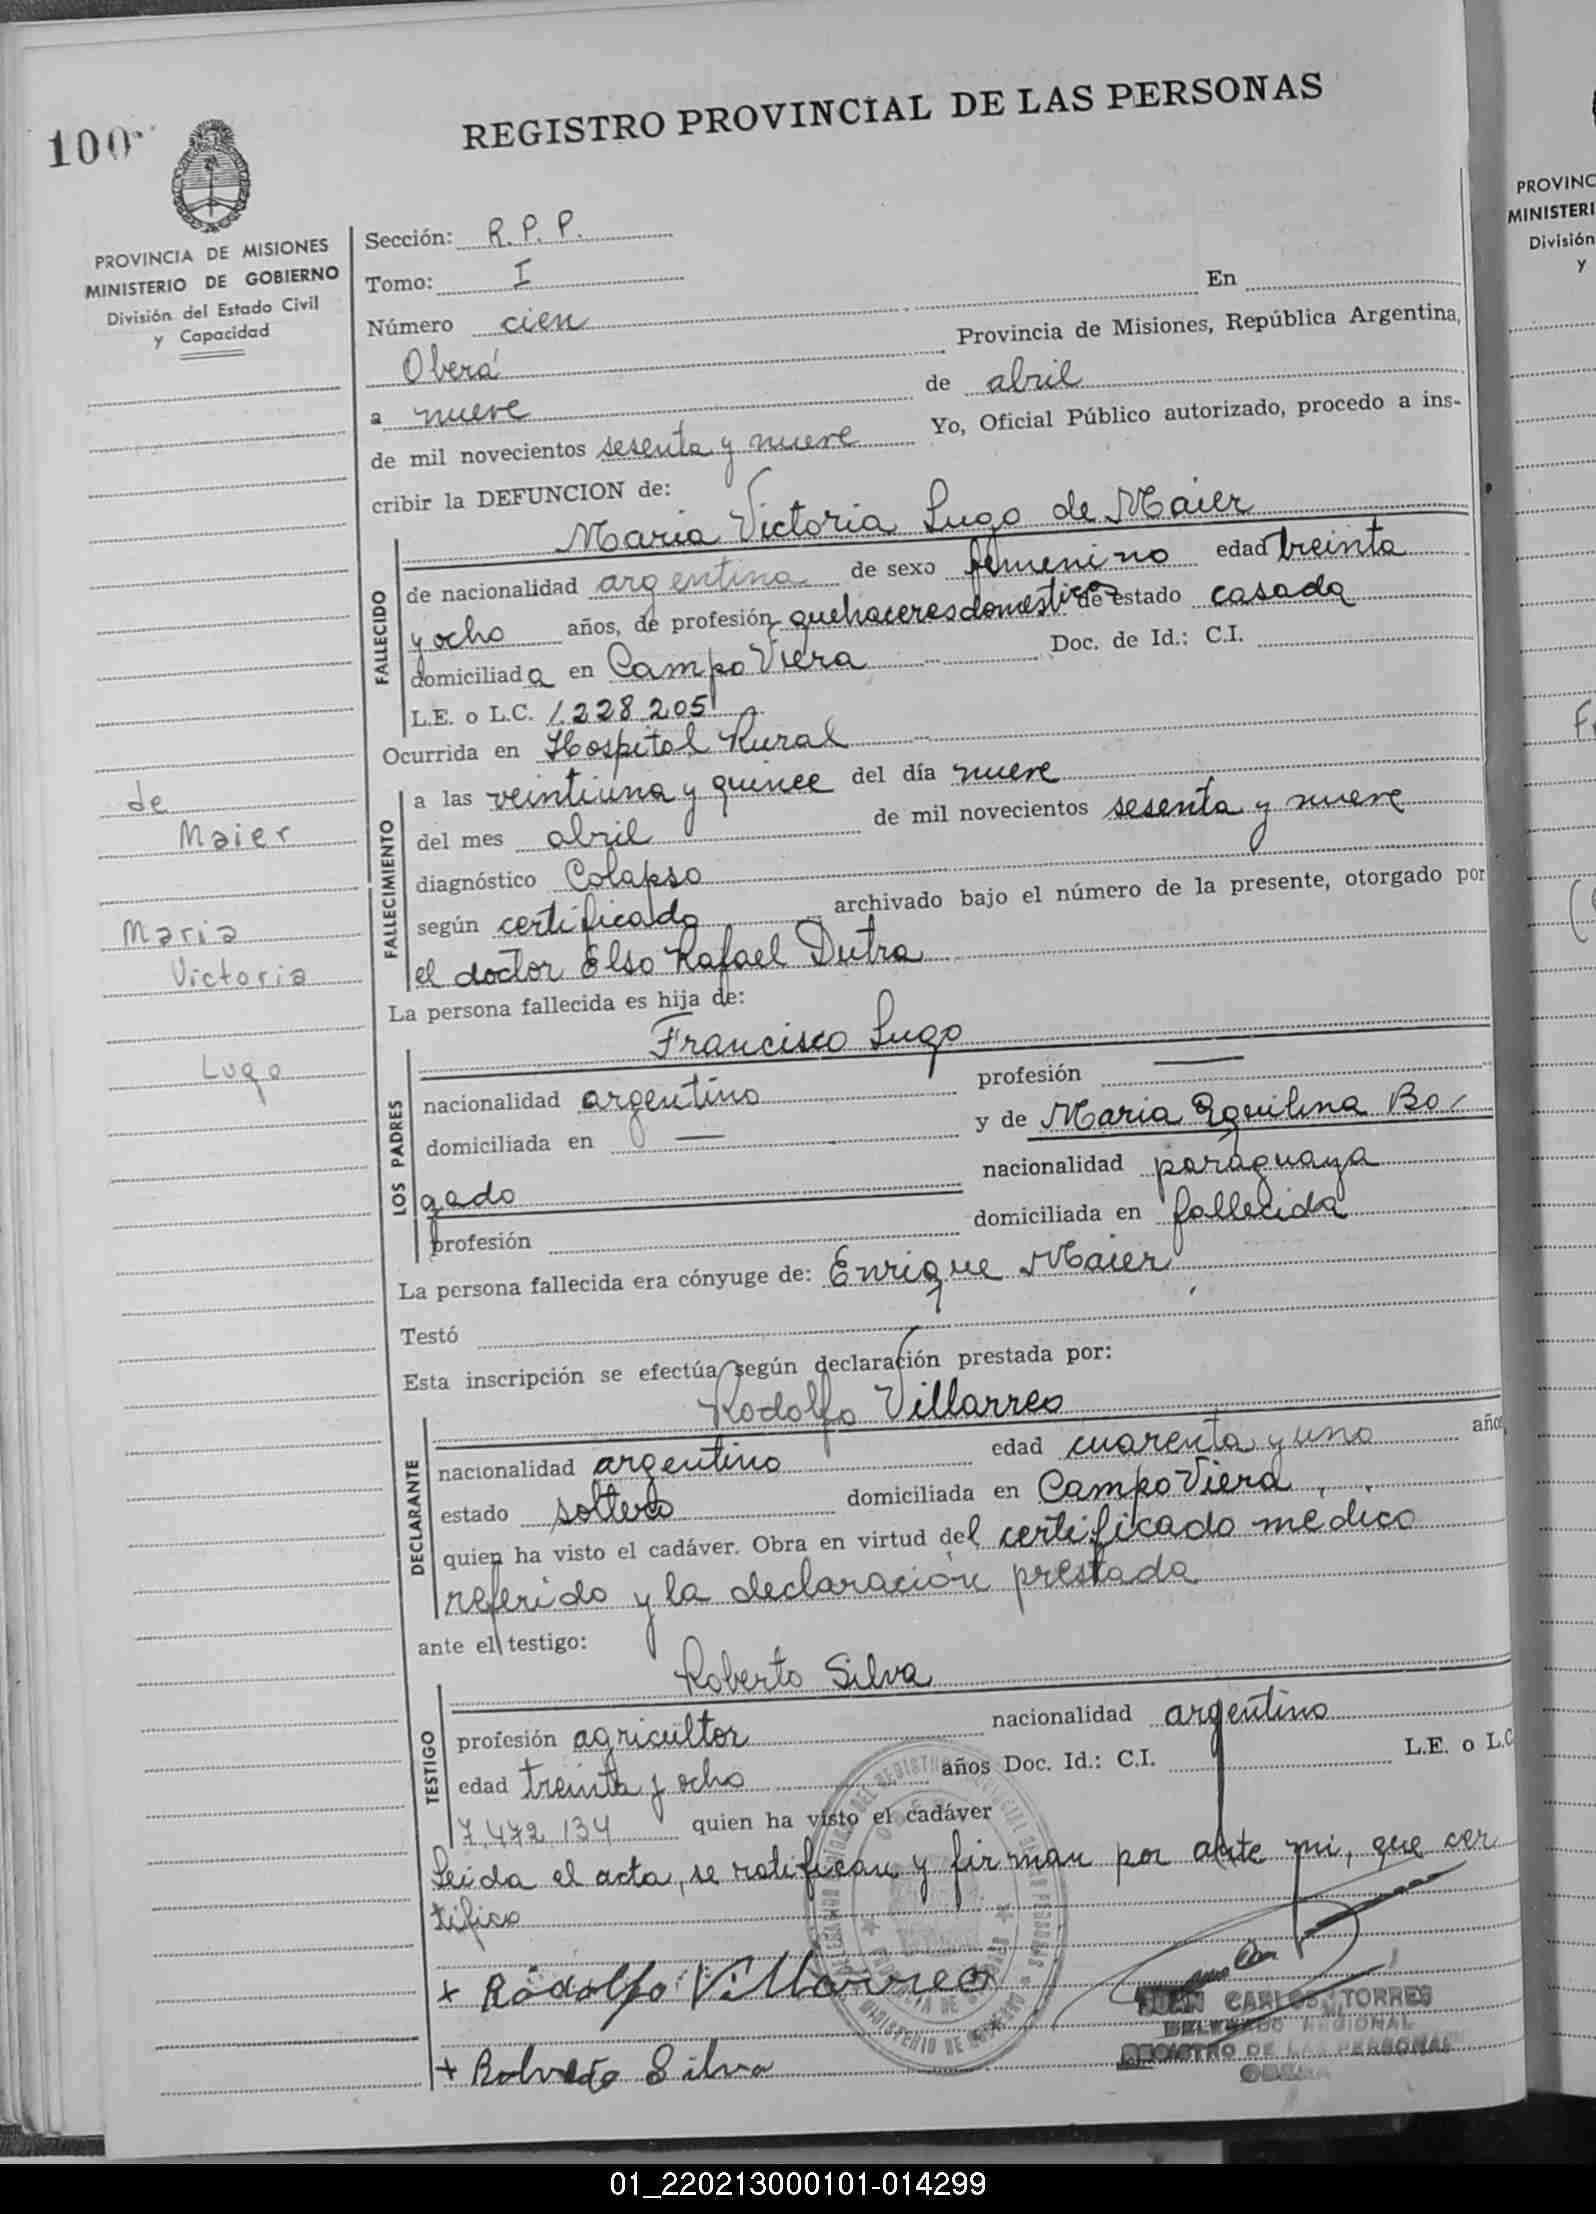 REGISTRO PROVINCIAL DE LAS PERSONAS
100
PROVINCIA DE MISIONES
MINISTERIO DE GOBIERNO
División del Estado Civil
y Capacidad
de
Maier
Maria
Victoria
Lugo
Sección: R. P. P.
Tomo: I
Número cien En
Oberá Provincia de Misiones, República Argentina,
a nueve de abril
de mil novecientos sesenta y nueve Yo, Oficial Público autorizado, procedo a ins-
cribir la DEFUNCION de:
Maria Victoria Lugo de Maier
FALLECIDO
de nacionalidad argentina de sexo femenino edad treinta
y ocho años, de profesión quehaceres domesticos de estado casada
domiciliada en Campo Viera Doc. de Id.: C.I.
L.E. o L.C. 1.228.205
Ocurrida en Hospital Rural
FALLECIMIENTO
a las veintiuna y quince del día nueve
del mes abril de mil novecientos sesenta y nueve
diagnóstico Colapso
según certificado archivado bajo el número de la presente, otorgado por
el doctor Elso Rafael Dutra
La persona fallecida es hija de:
Francisco Lugo
LOS PADRES
nacionalidad argentino profesión —
domiciliada en — y de Maria Aquilina Bo-
gado nacionalidad paraguaya
profesión domiciliada en fallecida
La persona fallecida era cónyuge de: Enrique Maier
Testó
Esta inscripción se efectúa según declaración prestada por:
Rodolfo Villarreo
DECLARANTE
nacionalidad argentino edad cuarenta y uno años
estado soltero domiciliada en Campo Viera
quien ha visto el cadáver. Obra en virtud del certificado medico
referido y la declaración prestada
ante el testigo:
Roberto Silva
TESTIGO
profesión agricultor nacionalidad argentino
edad treinta y ocho años Doc. Id.: C.I. L.E. o L.C
7.472.134 quien ha visto el cadáver
Leida el acta, se ratifican y firman por ante mi, que cer
tifico
+ Rodolfo Villarreo
+ Roberto Silva
JUAN CARLOS TORRES
DELEGADO REGIONAL
REGISTRO DE LAS PERSONAS
OBERA
PROVINC
MINISTERI
División
y
01_220213000101-014299